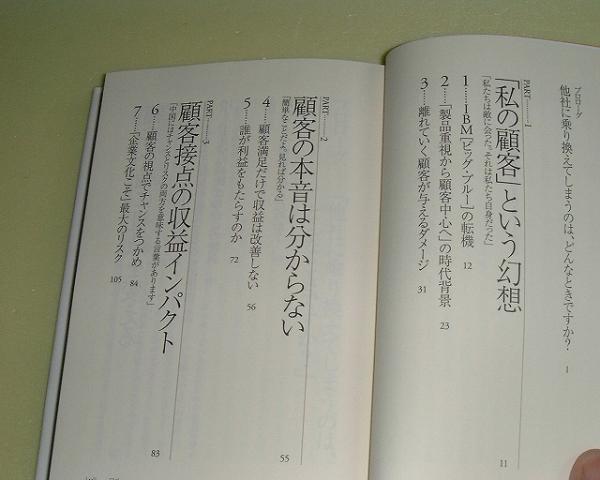 プロローグ
他社に乗り換えてしまうのは、どんなときですか? 1
PART 1
「私の顧客」という幻想 11
「私たちは敵に会った。それは私たち自身だった」
1……IBM「ビッグ・ブルー」の転機 12
2……「製品重視から顧客中心へ」の時代背景 23
3……離れていく顧客が与えるダメージ 31
PART 2
顧客の本音は分からない 55
「簡単なことだよ。見れば分かる」
4……顧客満足だけで収益は改善しない 56
5……誰が利益をもたらすのか 72
PART 3
顧客接点の収益インパクト 83
「中国にはチャンスとリスクの両方を意味する言葉があります」
6……顧客の視点でチャンスをつかめ 84
7……「企業文化こそ」最大のリスク 105